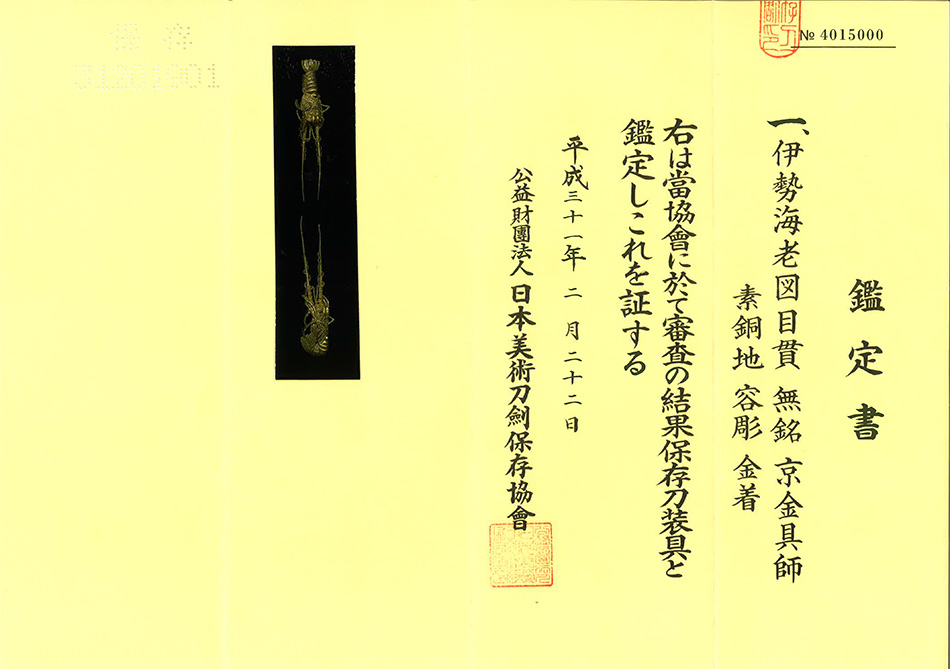 № 4015000
鑑定書
一、伊勢海老図目貫 無銘 京金具師
素銅地 容彫 金着
右は當協會に於て審査の結果保存刀装具と
鑑定しこれを証する
平成三十一年 二 月 二十二日
公益財團法人 日本美術刀劍保存協會